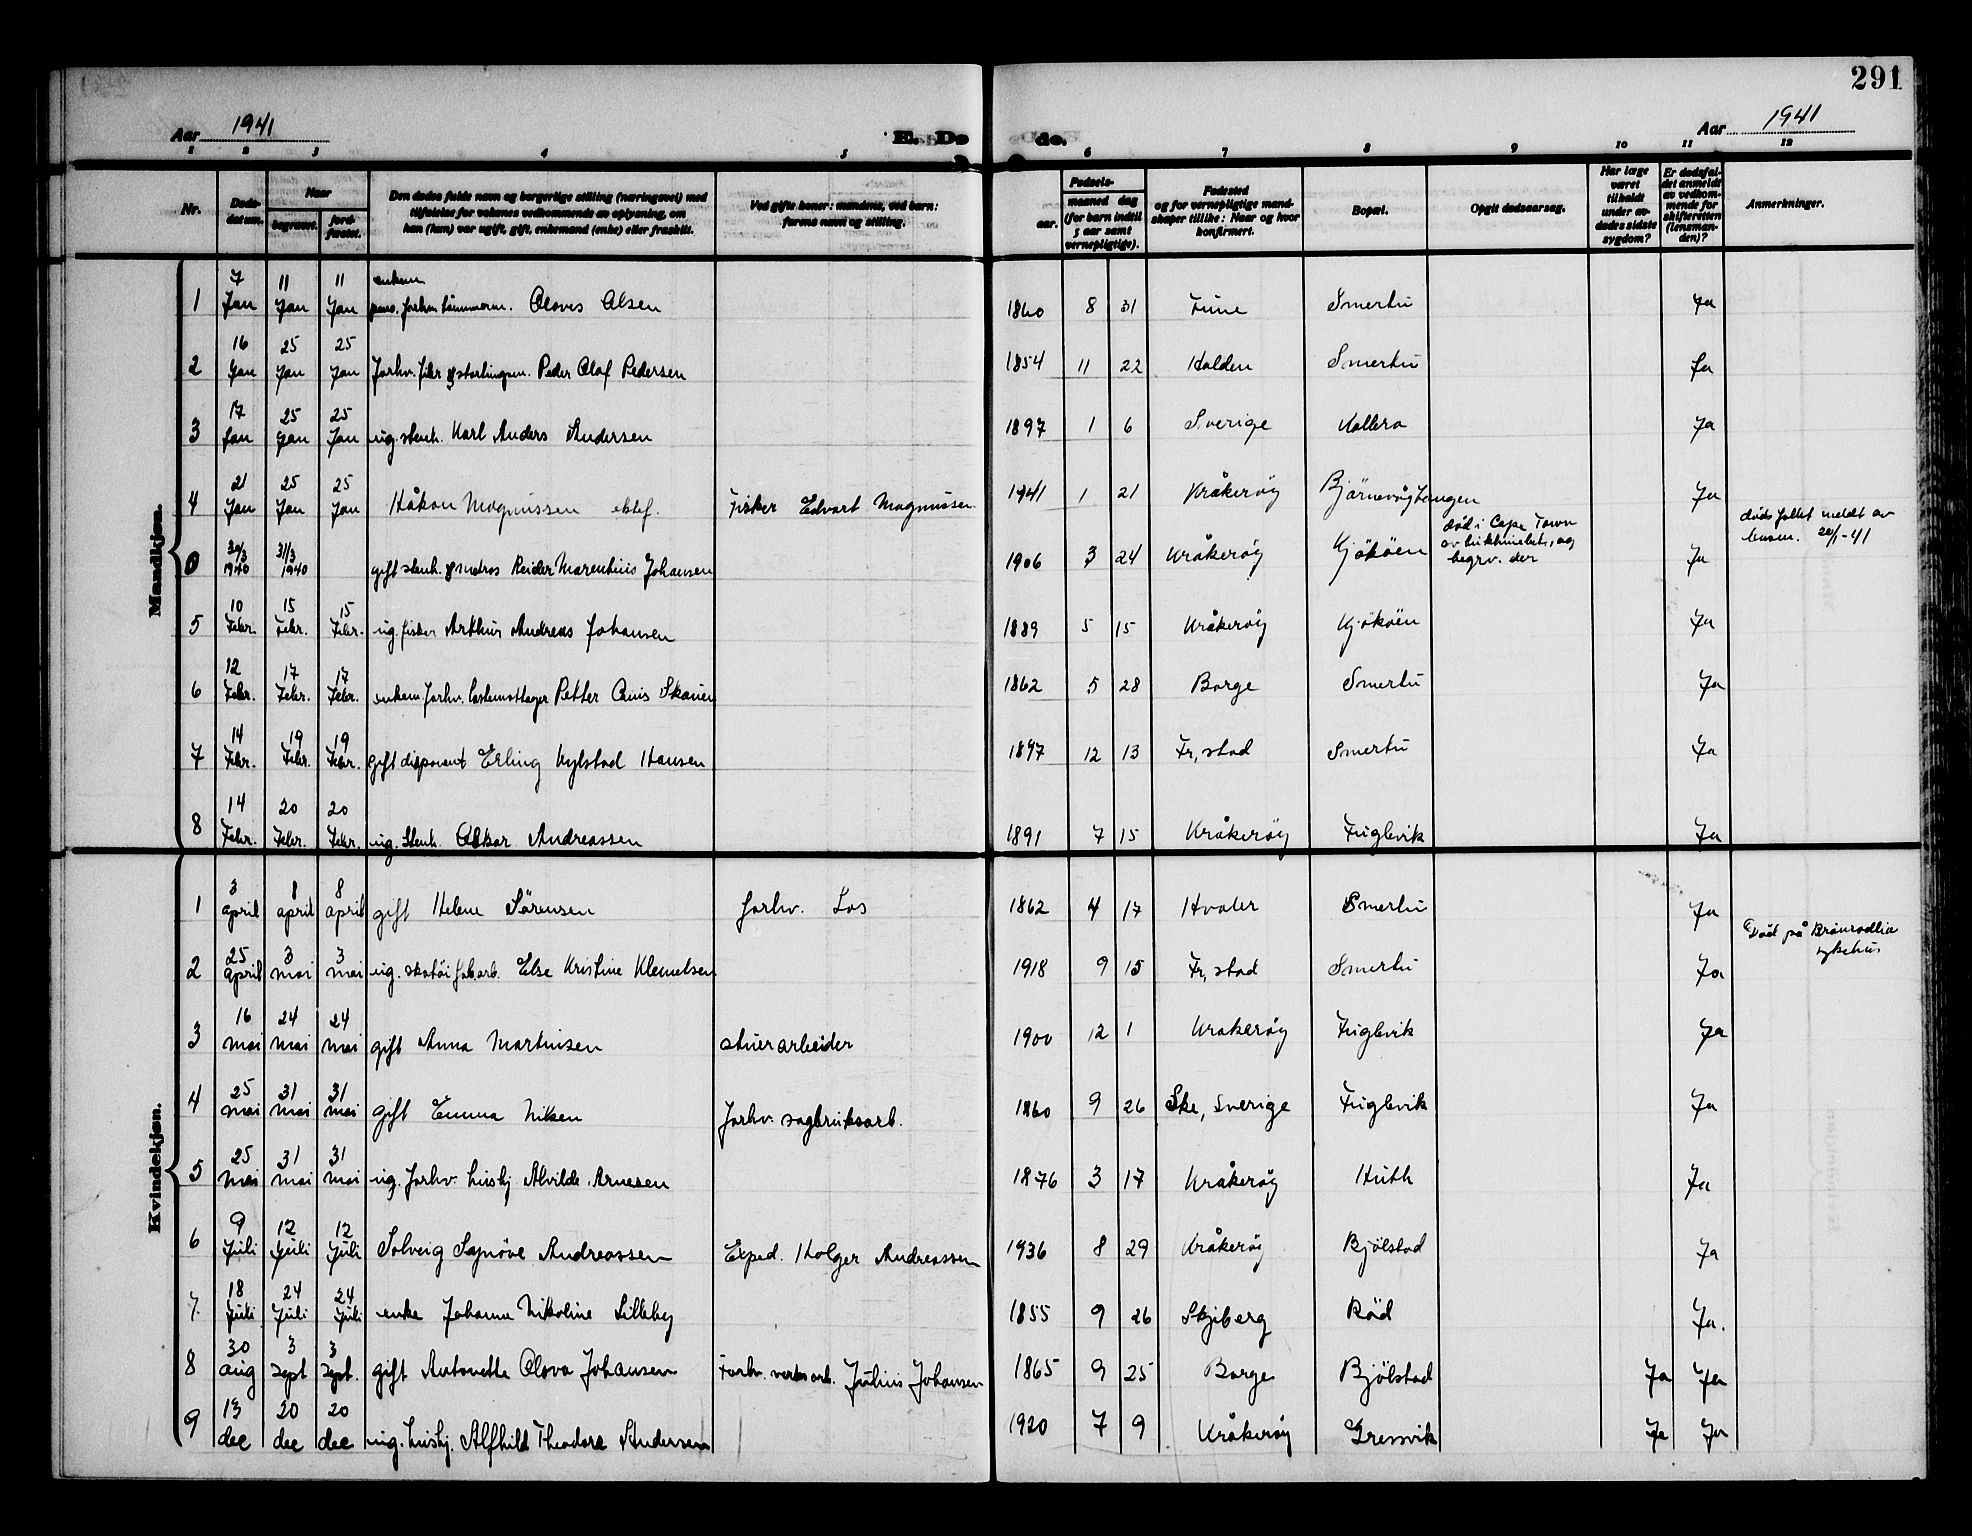 291
Aar 1941 E. Døde. Aar 1941
1 2 3 4 5 6 7 8 9 10 11 12
Nr.
Døds-datum.
Naar
begravet.
jord-fæstet.
Den dødes fulde navn og borgerlige stilling (næringsvei) med
tilføielse for voksnes vedkommende av oplysning, om
han (hun) var ugift, gift, enkemand (enke) eller fraskilt.
Ved gifte koner: mandens, ved barn:
farens navn og stilling.
Fødsels-
aar.
maaned dag
(for barn indtil
5 aar samt
vernepligtige).
Fødested
og for vernepligtige mand-
skaper tillike: Naar og hvor
konfirmert.
Bopæl.
Opgit dødsaarsag.
Har læge
været
tilkaldt
under av-
dødes sidste
sygdom?
Er dødsfal-
det anmeldt
av vedkom-
mende for
skifteretten
(lensman-
den)?
Anmerkninger.
Mandkjøn.
1 7 Jan 11 Jan 11 Jan enkem. Olaves Olsen 1860 8 31 Tune Smertu Ja
2 16 Jan 25 Jan 25 Jan Forhv. Peder Olaf Pedersen 1854 11 22 Halden Smertu Ja
3 17 Jan 25 Jan 25 Jan ug. stenh. Karl Anders Andersen 1897 1 6 Sverige Kallera Ja
4 21 Jan 25 Jan 25 Jan Håkon Magnussen ektef. Fisker Edvart Magnussen 1941 1 21 Kråkerøy Bjørnevågtangen Ja
0 30/3 1940 31/3 1940 gift stenh. og matros Reidar Marentius Johansen 1906 3 24 Kråkerøy Kjøkøen død i Cape Town av , og begrv. der Ja dødsfallet meldt av 20/1-41
5 10 Febr. 15 Febr. 15 Febr. ug. fisker Arthur Andreas Johansen 1889 5 15 Kråkerøy Kjøkøen Ja
6 12 Febr. 17 Febr. 17 Febr. enkem. forhv. lastemottager Petter Anis Skauen 1862 5 28 Borge Smertu Ja
7 14 Febr. 19 Febr. 19 Febr. gift disponent Erling Nylstad Hansen 1897 12 13 Fr,stad Smertu Ja
8 14 Febr. 20 Febr. 20 Febr. ug. Stenh. Oskar Andreassen 1891 7 15 Kråkerøy Fuglevik Ja
Kvindekjøn.
1 3 april 8 april 8 april gift Helene Sørensen forhv. Los 1862 4 17 Hvaler Smertu Ja
2 25 april 3 mai 3 mai ug. skotøifab.arb. Else Kristine Klemetsen 1918 9 15 Fr,stad Smertu Ja Død på sykehus
3 16 mai 24 mai 24 mai gift Anna Martinsen stuerarbeider 1900 12 1 Kråkerøy Fuglevik Ja
4 25 mai 31 mai 31 mai gift Emma Nilsen Forhv. sagbruksarb. 1860 9 26 Ske, Sverige Fuglevik Ja
5 25 mai 31 mai 31 mai ug. forhv. hushj. Alvilde Arnesen 1876 3 17 Kråkerøy Huth Ja
6 9 Juli 12 Juli 12 Juli Solveig Synøve Andreassen Exped. Holger Andreassen 1936 8 29 Kråkerøy Bjølstad Ja
7 18 Juli 24 Juli 24 Juli enke Johanne Nikoline Lilleby 1855 9 26 Skjeberg Rød Ja.
8 30 aug 3 sept 3 sept. gift Antonette Olova Johansen Forhv. verksarb. Julius Johansen 1865 9 25 Borge Bjølstad Ja Ja
9 13 dec 20 dec 20 dec ug. hushj. Alfhild Theodora Andersen 1920 7 9 Kråkerøy Gressvik Ja Ja